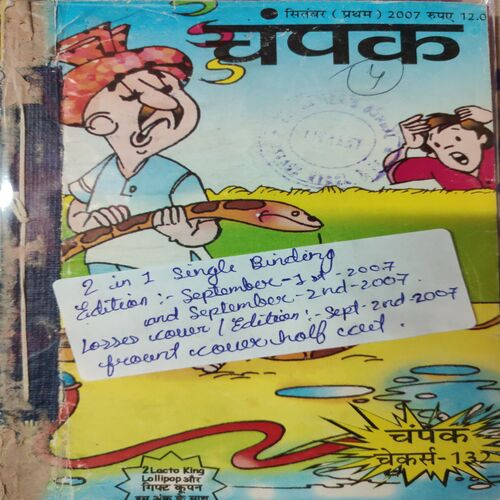 सितंबर ( प्रथम ) 2007 रुपए 12.0
चंपक
4
2 in 1 Single Binding
Edition :- September-1st-2007
and September-2nd-2007.
Losses cover / Edition :- Sept-2nd-2007
fraunt cover half cut.
चंपक
चेकर्स-132
2 Lacto King
Lollipop और
गिफ्ट कूपन
इस अंक के साथ